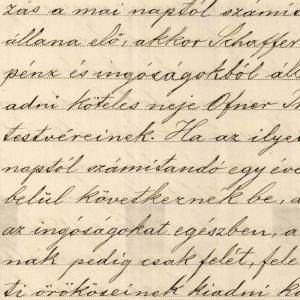 zás a mai naptól számí
állana elő, akkor Schaffer
pénz és ingóságokból ál
adni köteles neje Ofner
testvéreinek. Ha az ilye
naptól számitandó egy éve
belül következnék be, a
az ingóságokat egészben, a
nak pedig csak felét, fele
ti örököseinek kiadni k